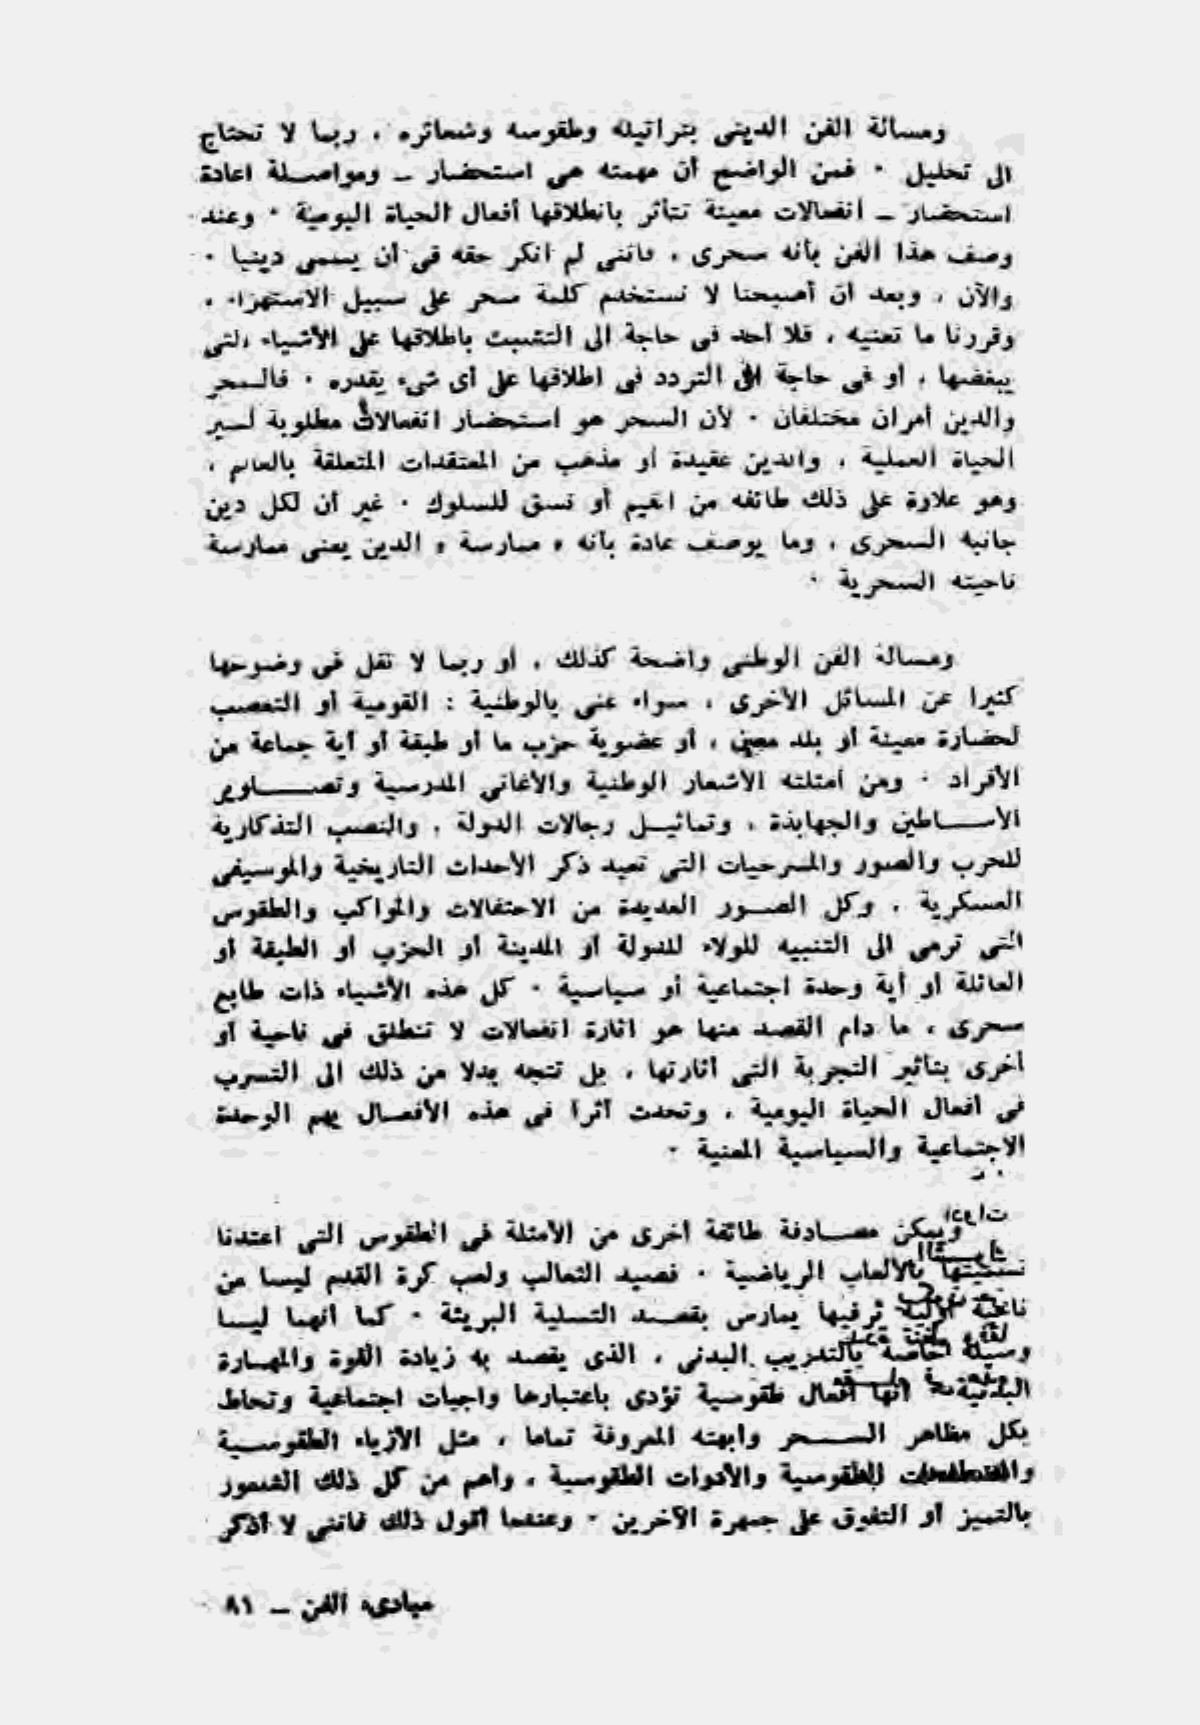 ومسألة الفن الدينى بتراتيله وطقوسه وشعائره ، ربما لا تحتاج
الى تحليل ٠ فمن الواضح أن مهمته هى استحضار ــ ومواصلة اعادة
استحضار ــ انفعالات معينة تتأثر بانطلاقها أفعال الحياة اليومية ٠ وعند
وصف هذا الفن بأنه سحرى ، فاننى لم أنكر حقه فى أن يسمى دينيا ٠
والآن ، وبعد أن أصبحنا لا نستخدم كلمة سحر على سبيل الاستهزاء ،
وقررنا ما تعنيه ، فلا أحد فى حاجة الى التشبث باطلاقها على الأشياء التى
يبغضها ، أو فى حاجة الى التردد فى اطلاقها على أى شىء يقدره ٠ فالسحر
والدين أمران مختلفان ٠ لأن السحر هو استحضار انفعالات مطلوبة لسير
الحياة العملية ، والدين عقيدة أو مذهب من المعتقدات المتعلقة بالعالم ،
وهو علاوة على ذلك طائفة من القيم أو نسق للسلوك ٠ غير أن لكل دين
جانبه السحرى ، وما يوصف عادة بأنه « ممارسة » الدين يعنى ممارسة
ناحيته السحرية ٠
ومسألة الفن الوطنى واضحة كذلك ، أو ربما لا تقل فى وضوحها
كثيرا عن المسائل الأخرى ، سواء عنى بالوطنية : القومية أو التعصب
لحضارة معينة أو بلد معين ، أو عضوية حزب ما أو طبقة أو أية جماعة من
الأفراد ٠ ومن أمثلته الأشعار الوطنية والأغانى المدرسية وتصــــاوير
الأســاطين والجهابذة ، وتماثيــل رجالات الدولة ، والنصب التذكارية
للحرب والصور والمسرحيات التى تعيد ذكر الأحداث التاريخية والموسيقى
العسكرية ، وكل الصــور العديدة من الاحتفالات والمواكب والطقوس
التى ترمى الى التنبيه للولاء للدولة أو المدينة أو الحزب أو الطبقة أو
العائلة أو أية وحدة اجتماعية أو سياسية ٠ كل هذه الأشياء ذات طابع
سحرى ، ما دام القصد منها هو اثارة انفعالات لا تنطلق فى ناحية أو
أخرى بتأثير التجربة التى أثارتها ، بل تتجه بدلا من ذلك الى التسرب
فى أفعال الحياة اليومية ، وتحدث أثرا فى هذه الأفعــال يهم الوحدة
الاجتماعية والسياسية المعنية ٠
ويمكن مصــادفة طائفة أخرى من الأمثلة فى الطقوس التى اعتدنا
تسميتها بالألعاب الرياضية ٠ فصيد الثعالب ولعب كرة القدم ليسا من
ناحية ترفيها يمارس بقصــد التسلية البريئة ٠ كما أنهما ليسا
وسيلة خاصة بالتدريب البدنى ، الذى يقصد به زيادة القوة والمهــارة
البدنية انها أفعال طقوسية تؤدى باعتبارها واجبات اجتماعية وتحاط
بكل مظاهر الســـحر وأبهته المعروفة تماما ، مثل الأزياء الطقوسـية
الطقوسية والأدوات الطقوسية ، وأهم من كل ذلك الشعور
بالتميز أو التفوق على جمهرة الآخرين ٠ وعندما أقول ذلك فاننى لا أذكر
مبادىء الفن ــ ٨١